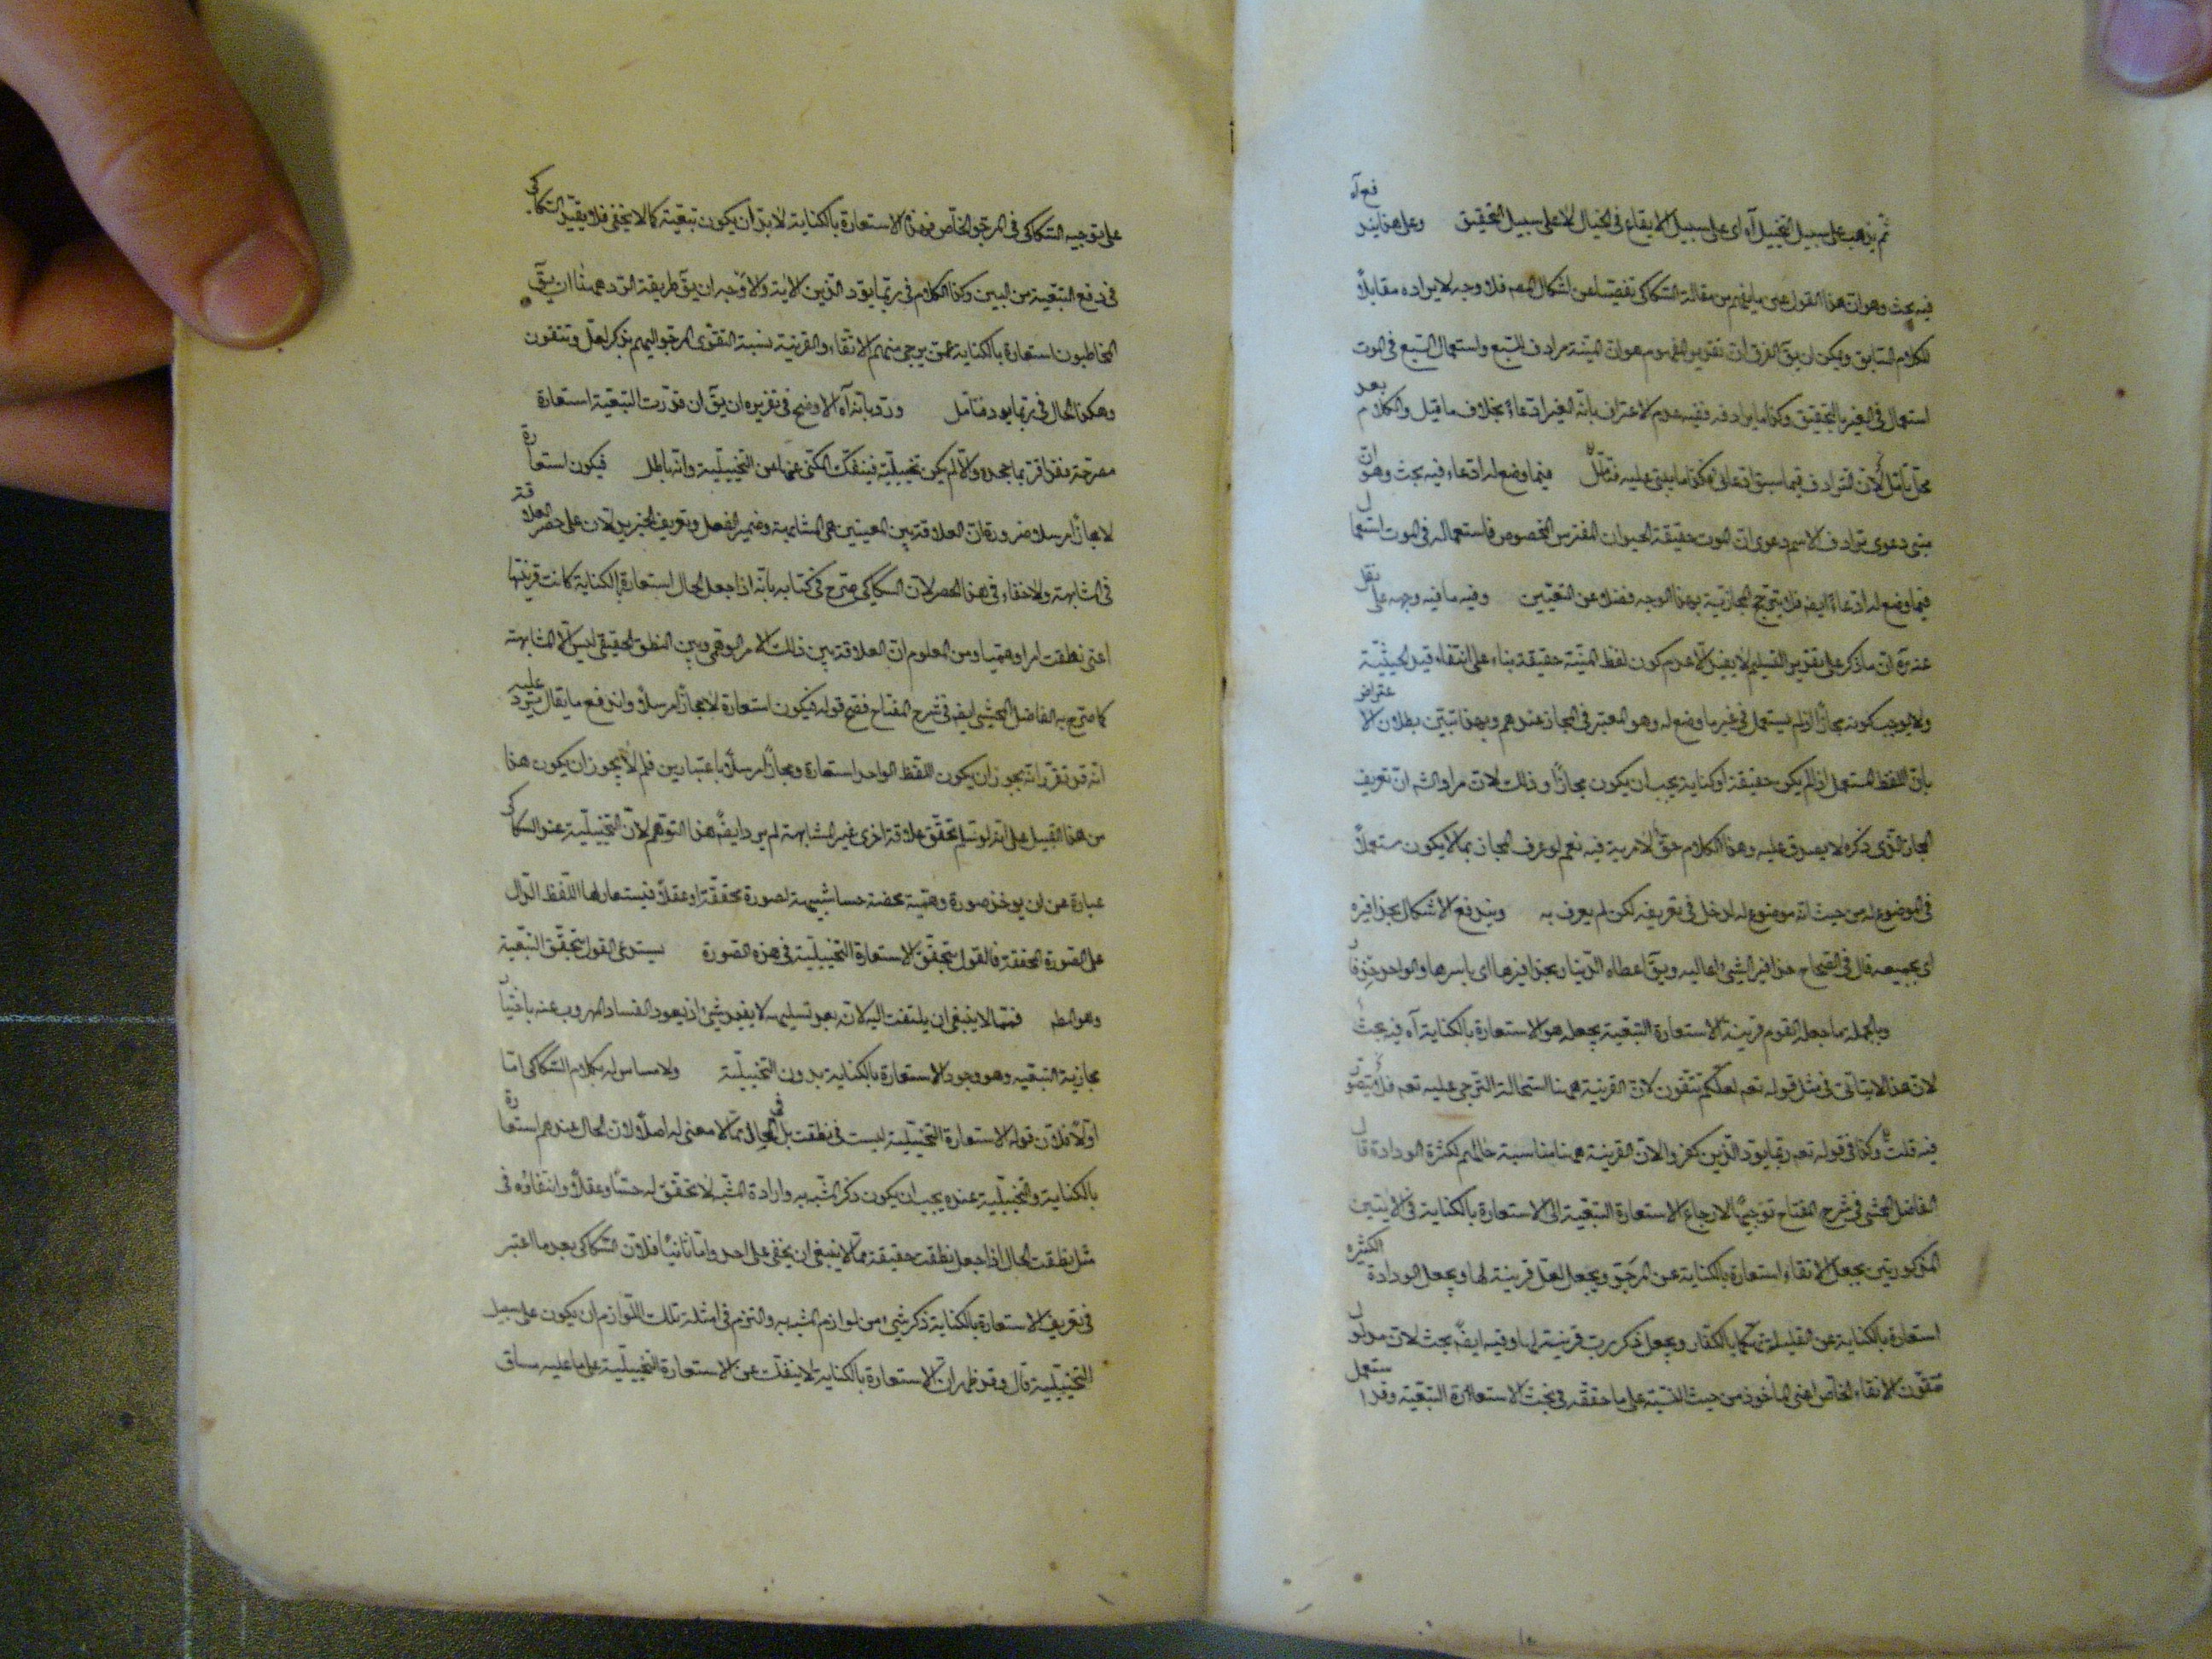 ثم يذهب على سبيل التخييل آه اى على سبيل الايقاع فى الخيال لا على سبيل التحقيق وعلى هذا يندفع آه
فيه بحث وهو ان هذا القول عين ما يفهم من مقالة السكاكى تفصيا عن اشكال المص فلا وجه لايراده مقابلا
للكلام السابق ويمكن ان يق الفرق ان تقرير المفهوم هو ان المنية مرادف للسبع واستعمال السبع فى الموت
استعمال فى الغير بالتحقيق وكذا ما يرادفه ففيه عدم الاعتراف بانه الغير ادعاء بخلاف ما قيل والكلام بعد
محل تأمل لان الترادف فيما سبق ادعائى فكذا ما يبتنى عليه فتأمل فيما وضع له ادعاء فيه بحث وهو ان
مبنى دعوى ترادف الاسم دعوى ان الموت حقيقة الحيوان المفترس المخصوص فاستعماله فى الموت استعمال
فيما وضع له ادعاء ايضا فلا يتوجه المجازية بهذا الوجه فضلا عن التعيين وفيه ما فيه وجهه على نقل
عنه ره ان ما ذكر على تقدير التسليم لا يفيد الا عدم كون لفظ المنية حقيقة بناء على انتفاء قيد الحيثية
ولا يوجب كونه مجازا اذ لم يستعمل فى غير ما وضع له وهو المعتبر فى المجاز عندهم وبهذا تبين بطلان الاعتراض
بان اللفظ المستعمل اذا لم يكن حقيقة او كناية يجب ان يكون مجازا وذلك لان مراد الشه ان تعريف
المجاز الذى ذكره لا يصدق عليه وهذا الكلام حق لا مرية فيه نعم لو عرف المجاز بما لا يكون مستعملا
فى الموضوع له من حيث انه موضوع له لدخل فى تعريفه لكن لم يعرف به ويندفع الاشكال بحذافيره
اى بجميعه قال فى الصحاح حذافير الشئ اعاليه ويق اعطاه الدنيا بحذافيرها اى باسرها والواحد حذفار
وبالجملة ما جعله القوم قرينة الاستعارة التبعية يجعله هو الاستعارة بالكناية آه فيه بحث
لان هذا لا يتأتى فى مثل قوله تعم لعلكم تتقون لان القرينة ههنا استحالة الترجى عليه تعم فلا يتصور
فيه قلت وكذا فى قوله تعم ربما يود الذين كفروا لان القرينة ههنا مناسبة حالهم لكثرة الودادة قال
الفاضل المحشى فى شرح المفتاح توجيها لارجاع الاستعارة التبعية الى الاستعارة بالكناية فى الايتين
المذكورتين بجعل الاتقاء استعارة بالكناية عن المرجو ويجعل لعل قرينة لها ويجعل الودادة الكثيرة
استعارة بالكناية عن القليلة تهكما بالكفار ويجعل ذكر رب قرينة لها وفيه ايضا بحث لان مدلول
تتقون الاتقاء الخاص اعنى المأخوذ من حيث النسبة على ما حققه فى بحث الاستعارة التبعية وقد استعمل
على توجيه السكاكى فى المرجو الخاص فهذه الاستعارة بالكناية لا بد ان يكون تبعية كما لا يخفى فلا يفيد السكاكى
فى دفع التبعية من البين وكذا الكلام فى ربما يود الذين الاية والاوجه ان يق طريقة الرد ههنا ان يق
المخاطبون استعارة بالكناية عمن يرجى منهم الاتقاء والقرينة نسبة التقوى المرجو اليهم بذكر لعل وتتقون
وهكذا الحال فى ربما يود فتأمل ورد بانه آه الاوضح فى تقريره ان يق ان قدرت التبعية استعارة
مصرحة فقد اقر بما جحده والا لم يكن تخييلية فينفك المكنى عنها عن التخييلية وانه باطل فيكون استعارة
لا مجازا مرسلا ضرورة ان العلاقة بين المعنيين هى المشابهة وضمير الفصل وتعريف الخبر يدلان على حصر العلاقة
فى المشابهة ولا خفاء فى هذا الحصر لان السكاكى صرح فى كتابه بانه اذا جعل الحال استعارة بالكناية كانت قرينتها
اعنى نطقت امرا وهميا ومن المعلوم ان العلاقة بين ذلك الامر الوهمى وبين النطق الحقيقى ليس الا المشابهة
كما صرح به الفاضل المحشى ايضه فى شرح المفتاح فصح قوله فيكون استعارة لا مجازا مرسلا واندفع ما يقال يرد عليه
انه قد تقرر انه يجوز ان يكون اللفظ الواحد استعارة ومجازا مرسلا باعتبارين فلم لا يجوز ان يكون هذا
من هذا القبيل على انه لو سلم تحقق علاقة اخرى غير المشابهة لم يرد ايضا هذا التوهم لان التخييلية عند السكاكى
عبارة عن ان يوخذ صورة وهمية محضة مشابهة لصورة محققة حسا او عقلا فيستعار لها اللفظ الدال
على الصورة المحققة فالقول بتحقق الاستعارة التخييلية فى هذه الصورة يستدعى القول بتحقق التبعية
وهو المط فمما لا ينبغى ان يلتفت اليه لانه بعد تسليمه لا يفيد شئ اذ يعود الفساد المهروب عنه باختيار
مجازية التبعية وهو وجود الاستعارة بالكناية بدون التخييلية ولا مساس له بكلام السكاكى اما
اولا فلان قوله الاستعارة التخييلية ليست فى نطقت بل فى الحال مما لا معنى له اصلا لان الحال عندهم استعارة
بالكناية والتخييلية عنده يجب ان يكون ذكر المشبه به وارادة المشبه لا تحقق له حسا وعقلا وانتفاؤه فى
مثل نطقت الحال اذا جعل نطقت حقيقة مما لا ينبغى ان يخفى على احد واما ثانيا فلان السكاكى بعد ما اعتبر
فى تعريف الاستعارة بالكناية ذكر شئ من لوازم المشبه به والتزم فى امثلة تلك اللوازم ان يكون على سبيل
التخييلية قال وقد ظهر ان الاستعارة بالكناية لا ينفك عن الاستعارة التخييلية على ما عليه مساق